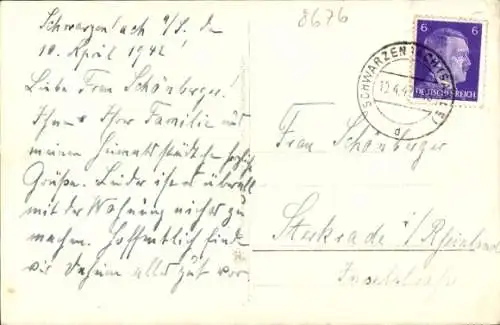 Schwarzenbach a/S. de
10. April 1942!
Liebe Frau Schönberger!
Ihnen u. Ihrer Familie aus
meinem Heimatstädtchen herzliche
Grüße. Leider ist es überall
mit der Wohnung nichts zu
machen. Hoffentlich finde
wir daheim alles gut vor
8676
6 6
DEUTSCHES REICH
SCHWARZENBACH (SAALE)
10.4.42
d
Frau Schönberger
Sterkrade i/Rheinland
Inselstraße